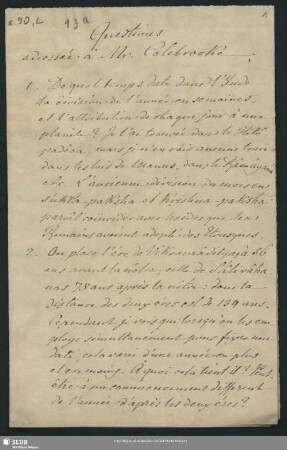 e.90, L 13a
1
Questions
adressées à Mr. Colebrooke
1. De quel temps date dans l'Inde
la division de l'année en semaines,
et l'attribution de chaque jour à une
planète? Je l'ai trouvée dans le Hitô-
padêsa, mais je n'en vois aucune trace
dans les lois de Manus, dans le Râmâyana
etc. L'ancienne division du mois en
sukla-paksha et krishna-paksha
paroit coincider avec les ides que les
Romains avoient adopté des Etrusques.
2. On place l'ère de Vikramâdityaja 56
ans avant la nôtre, celle de Sâlivâha-
nas 78 ans après la nôtre: donc la
distance des deux ères est de 134 ans.
Cependant je vois que lorsqu'on les em-
ploye simultanément pour fixer une
date, cela varie d'une année en plus
et en moins. A quoi cela tient il? Peut-
être à un commencement différent
de l'année d'après les deux ères?